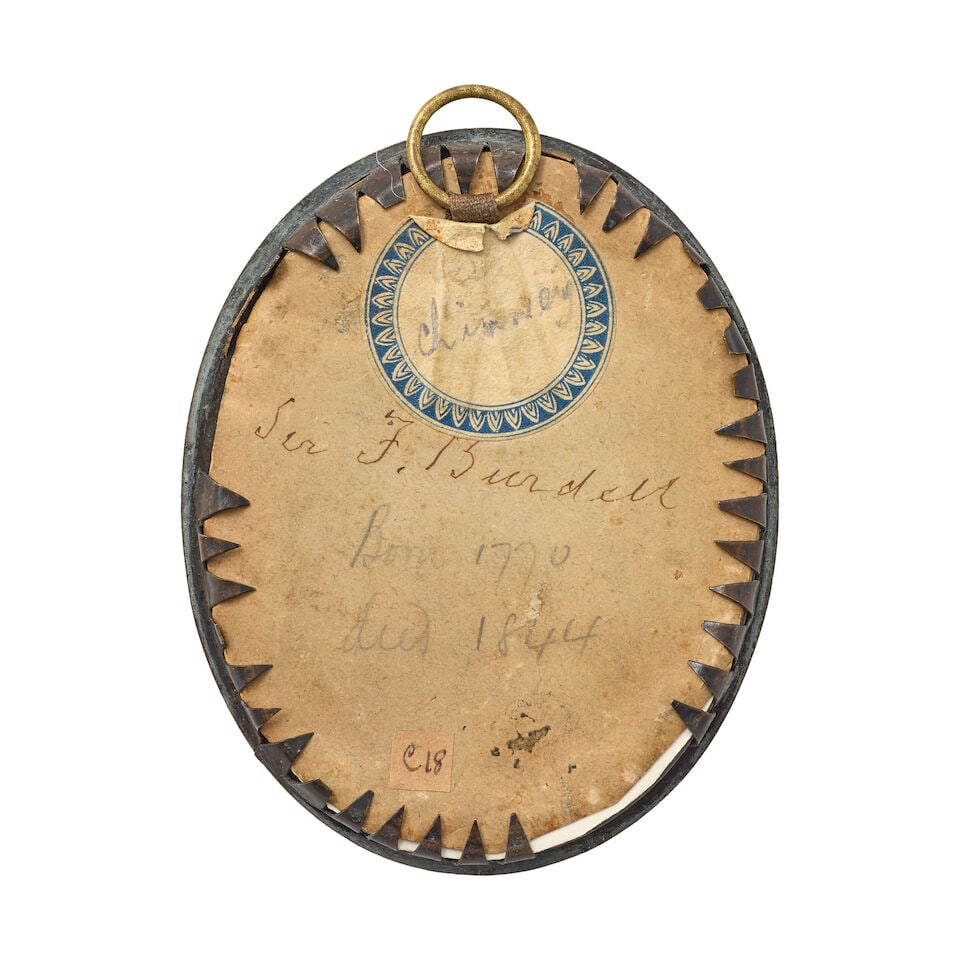 chimney
Sir F. Burdett
Born 1770
died 1844
C18